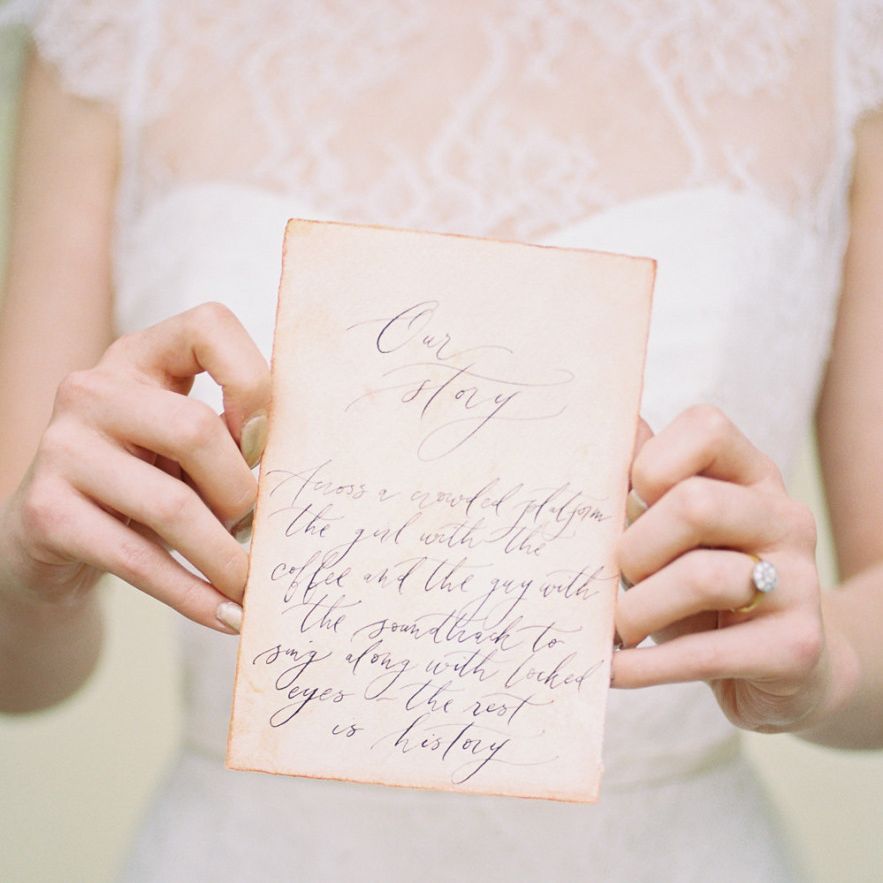 Our
story
Across a crowded platform
the girl with the
coffee and the guy with
the soundtrack to
sing along with locked
eyes - the rest
is history